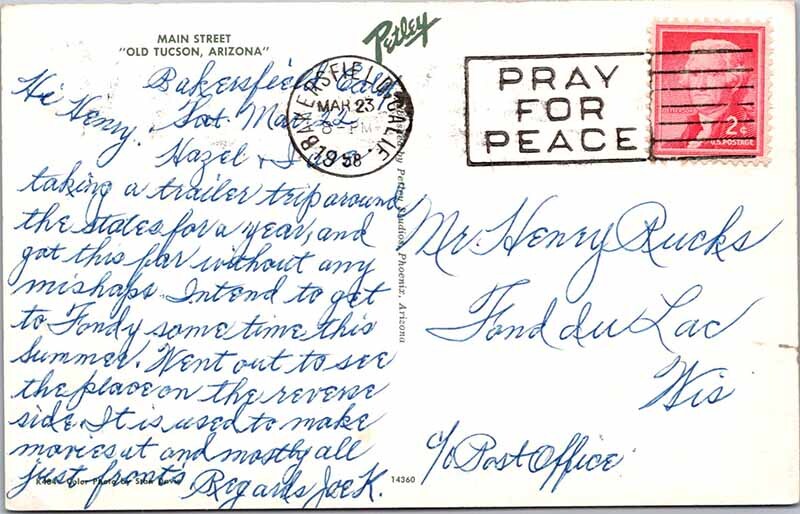 MAIN STREET
"OLD TUCSON, ARIZONA"
Petley
Bakersfield, Calif
Sat. Mar. 22
Hi Henry.
Hazel & I are
taking a trailer trip around
the states for a year, and
got this far without any
mishaps. Intend to get
to Fondy some time this
summer. Went out to see
the place on the reverse
side. It is used to make
movies at and mostly all
just fronts.
Regards Joe K.
Color Photo by
14360
by Petley Studios, Phoenix, Arizona
BAKERSFIELD, CALIF.
MAR 23
8-PM
1958
PRAY
FOR
PEACE
2¢
U.S. POSTAGE
Mr. Henry Rucks
Fond du Lac
Wis
c/o Post Office